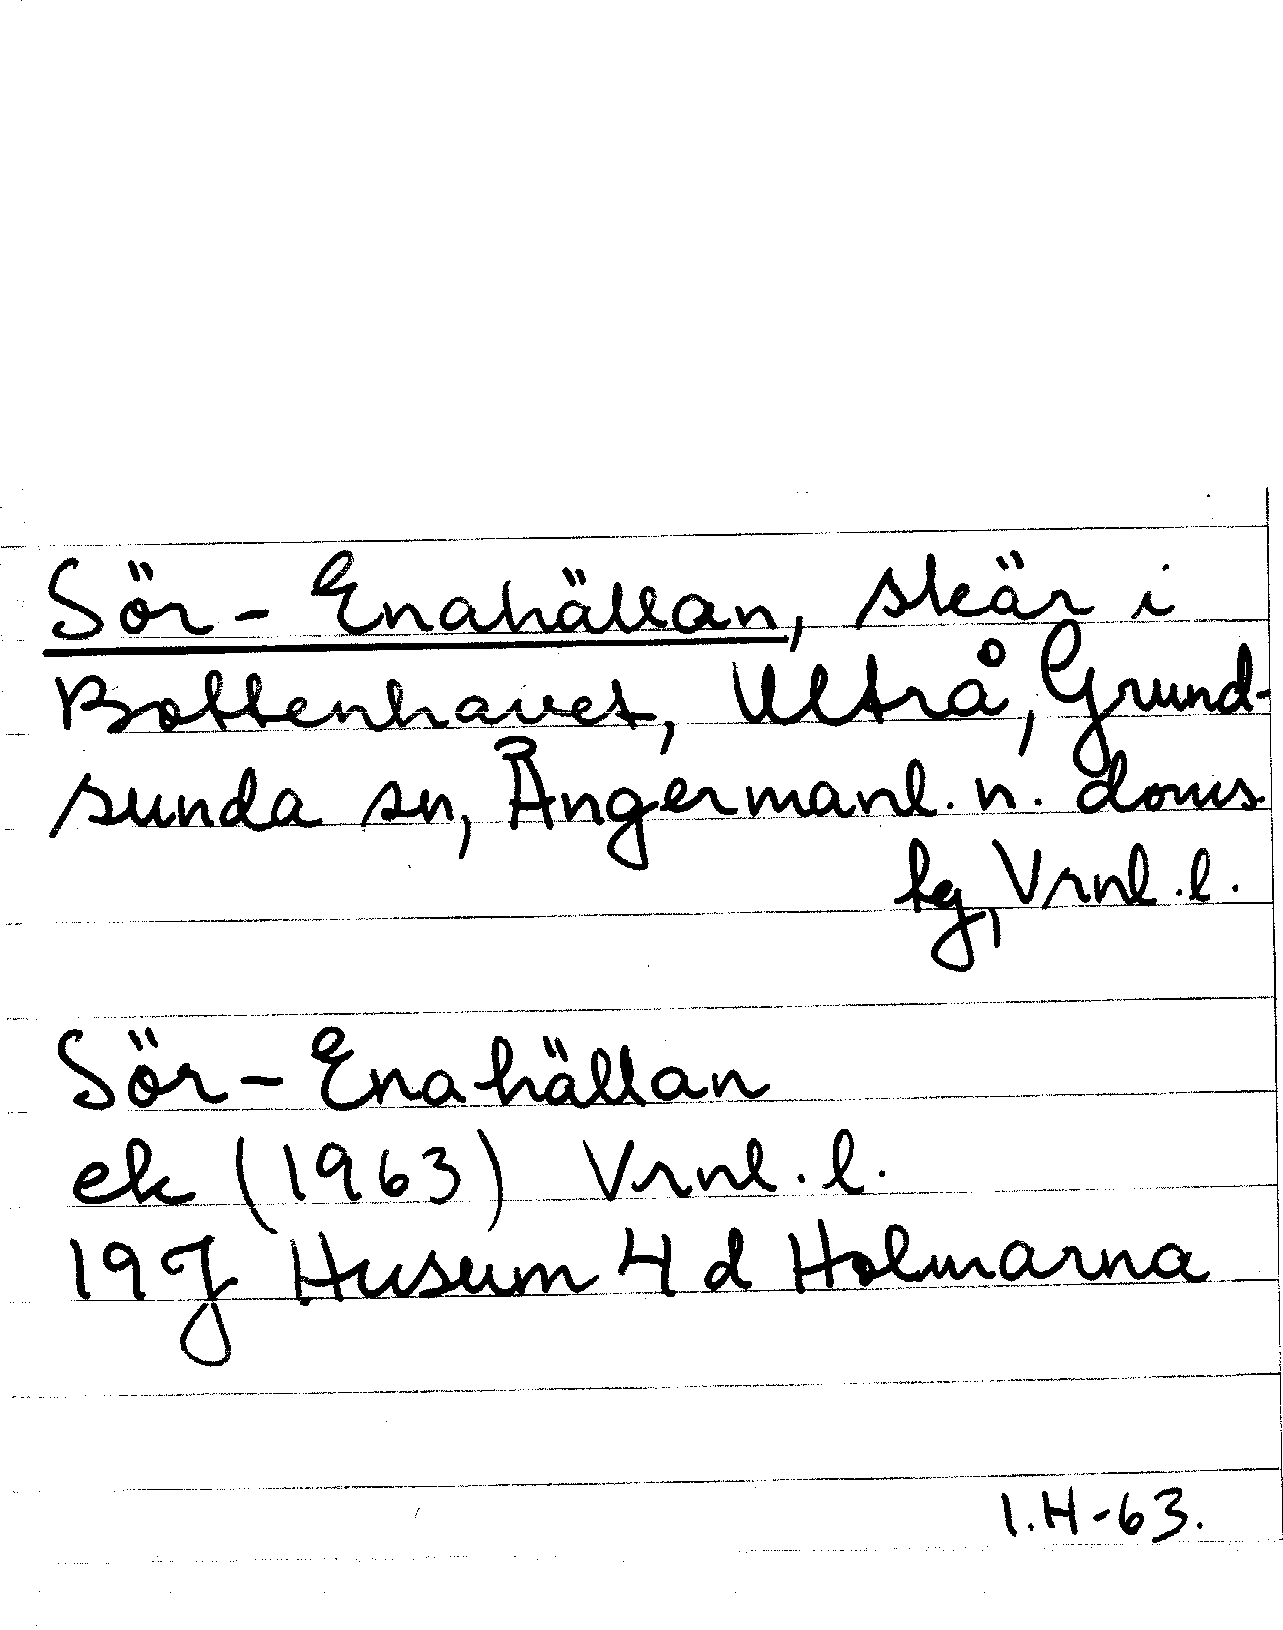 Sör-Enahällan, skär i
Bottenhavet, Ultrå, Grund-
sunda sn, Ångermanl. n. doms
bg, Vrnl. l.
Sör-Enahällan
ek (1963) Vrnl. l.
19 J Husum 4 d Holmarna
I.H-63.